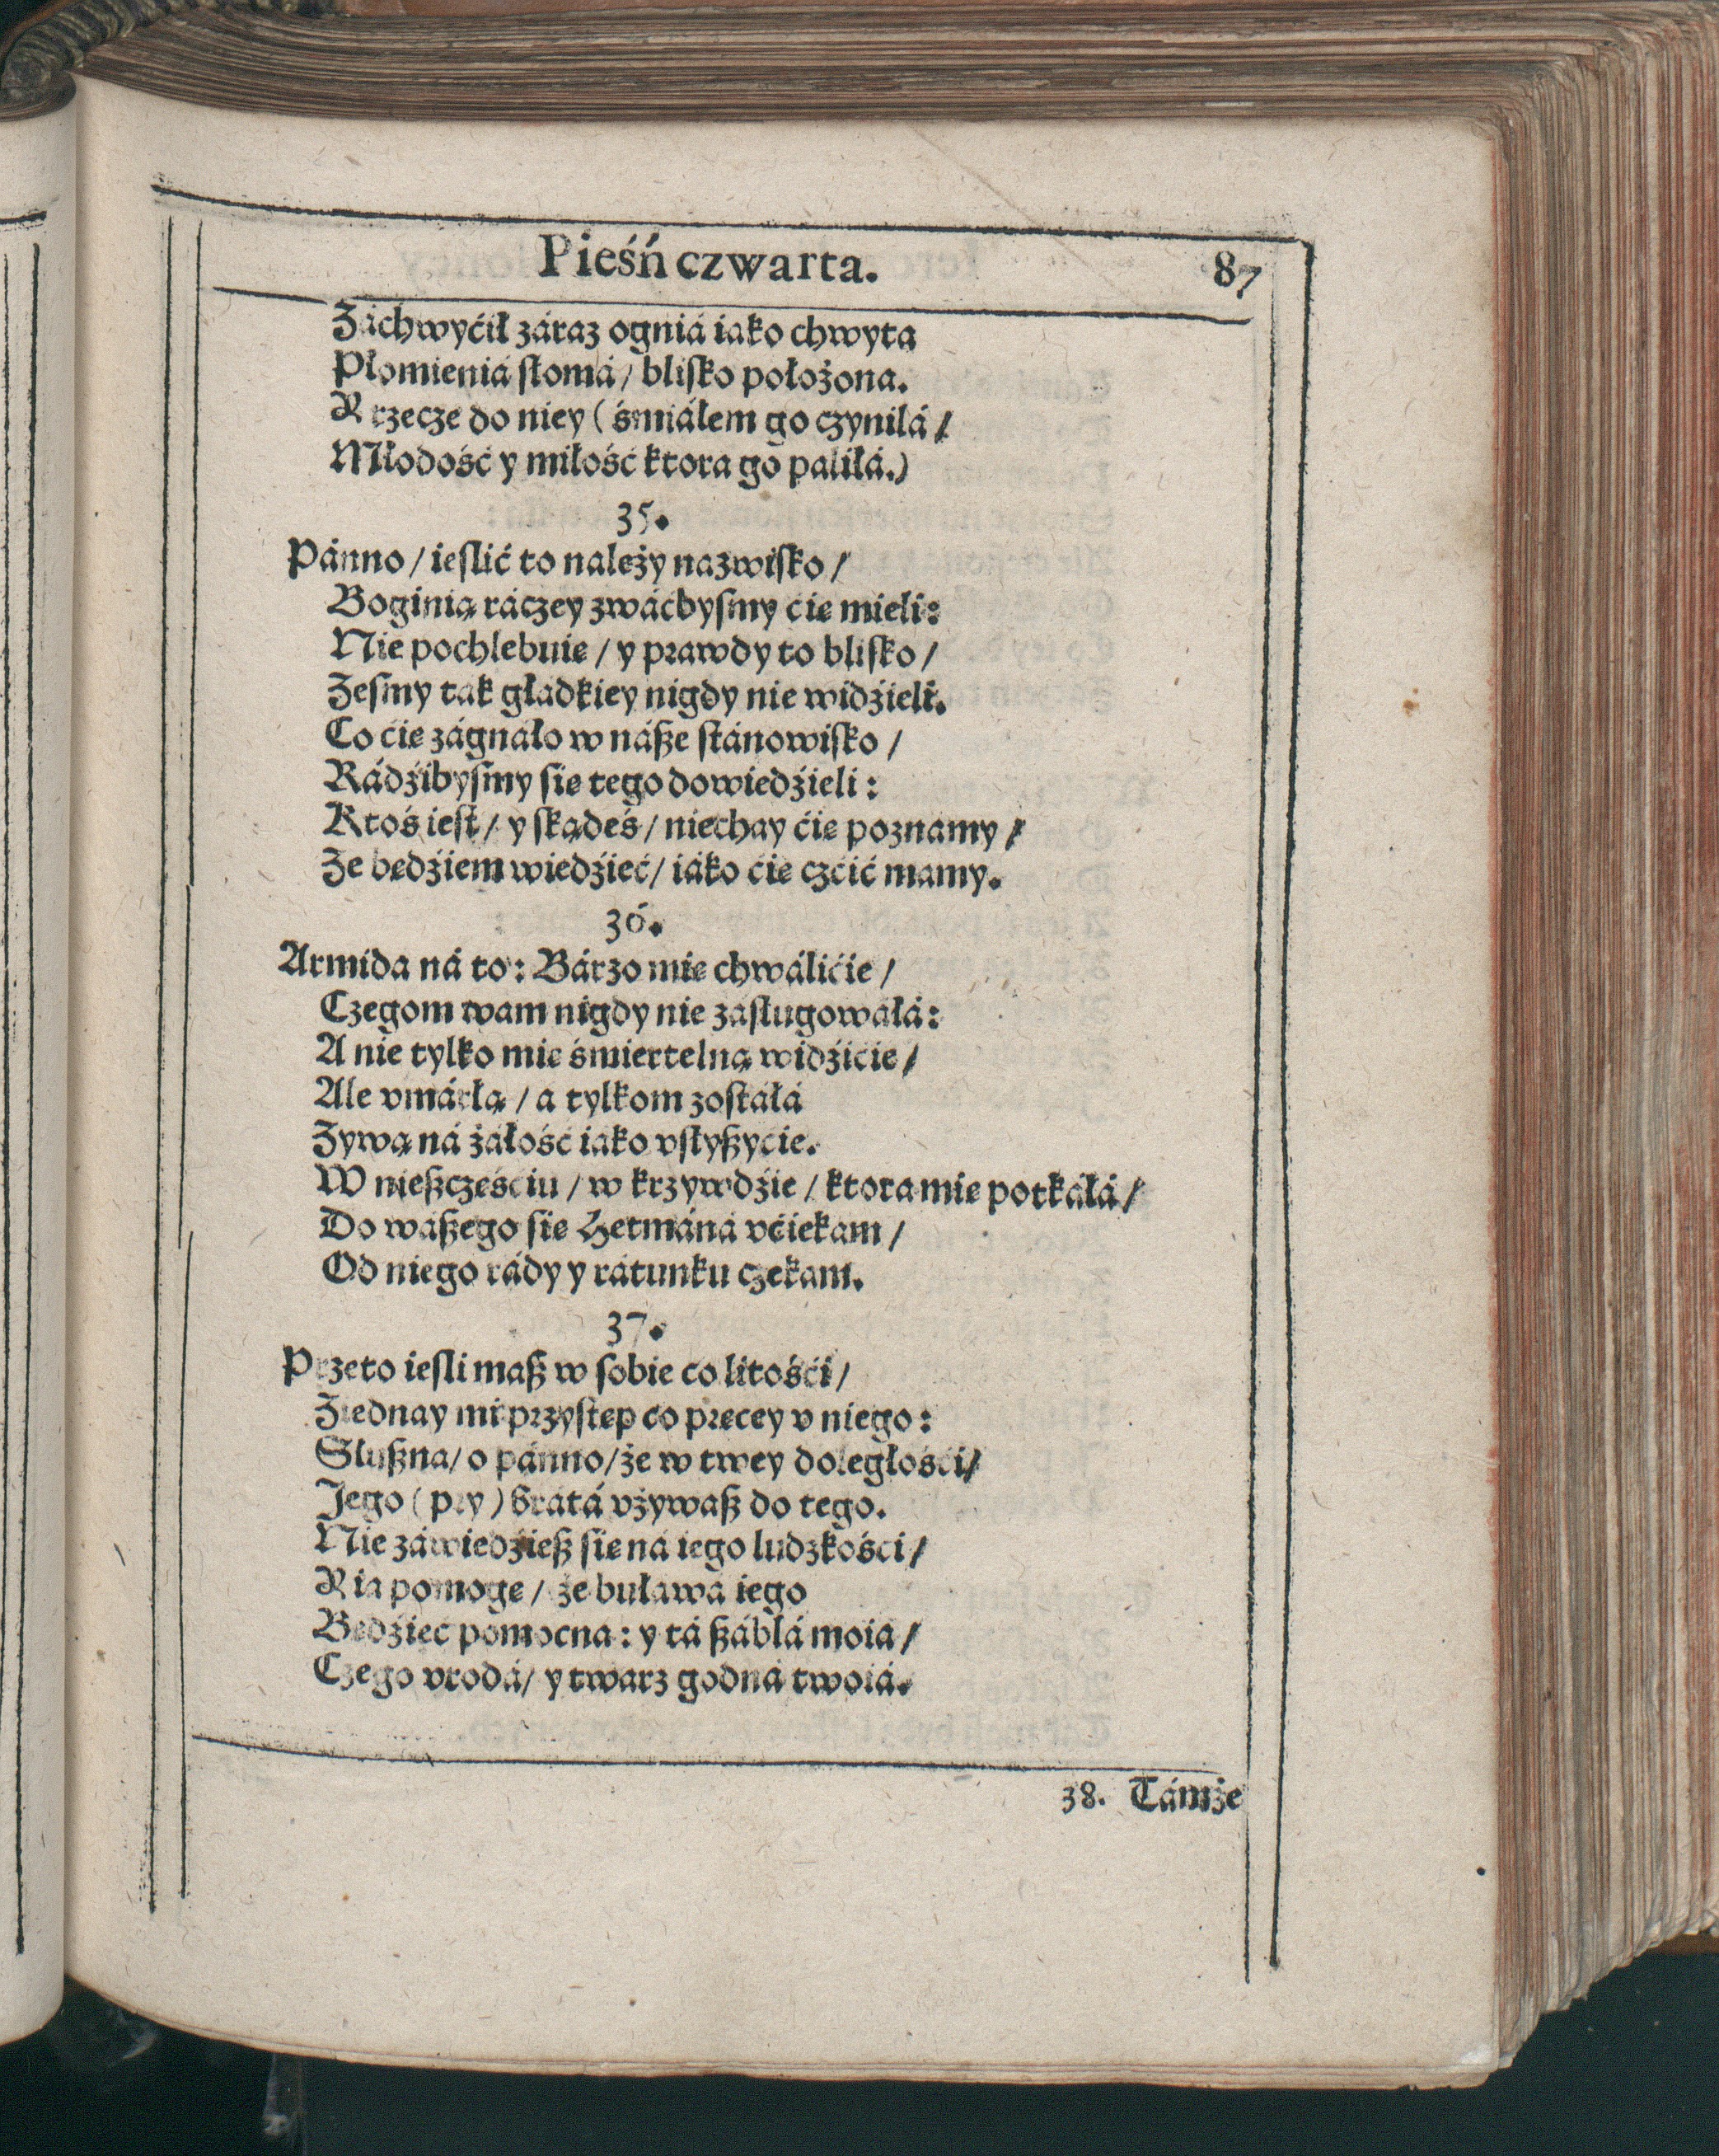 Pieśń czwarta. 87
Záchwyćił záraz ogniá iáko chwyta
Płomieniá słomá / blisko położona.
Y rzecze do niey (śmiáłem go czyniłá /
Młodość y miłość ktora go paliłá.)
35.
Pánno / ieslić to należy nazwisko /
Boginią ráczey zwáćbysmy ćię mieli:
Nie pochlebuię / y prawdy to blisko /
Żesmy ták głádkiey nigdy nie widźieli.
Co ćię zágnáło w násze stánowisko /
Rádźibysmy się tego dowiedźieli:
Ktoś iest / y skądeś / niechay ćię poznamy /
Że będźiem wiedźieć / iáko ćię czćić mamy.
36.
Armida ná to: Bárzo mię chwálićie /
Czegom wam nigdy nie zasługowáłá:
A nie tylko mię śmiertelną widźićie /
Ale vmárłą / a tylkom zostáłá
Żywą ná żáłość iáko vsłyszyćie.
W nieszczęśćiu / w krzywdźie / ktora mię potkáłá /
Do wászego się Hetmáná vćiekam /
Od niego rády y rátunku czekam.
37.
Przeto iesli masz w sobie co litośći /
Ziednay mi przystęp co pręcey v niego:
Słuszna / o pánno / że w twey doległośći /
Jego (pry) brátá vżywasz do tego.
Nie záwiedźiesz się ná iego ludzkośći /
Y ia pomogę / że buławá iego
Będźieć pomocna: y tá száblá moiá /
Czego vrodá / y twarz godná twoiá.
38. Támże